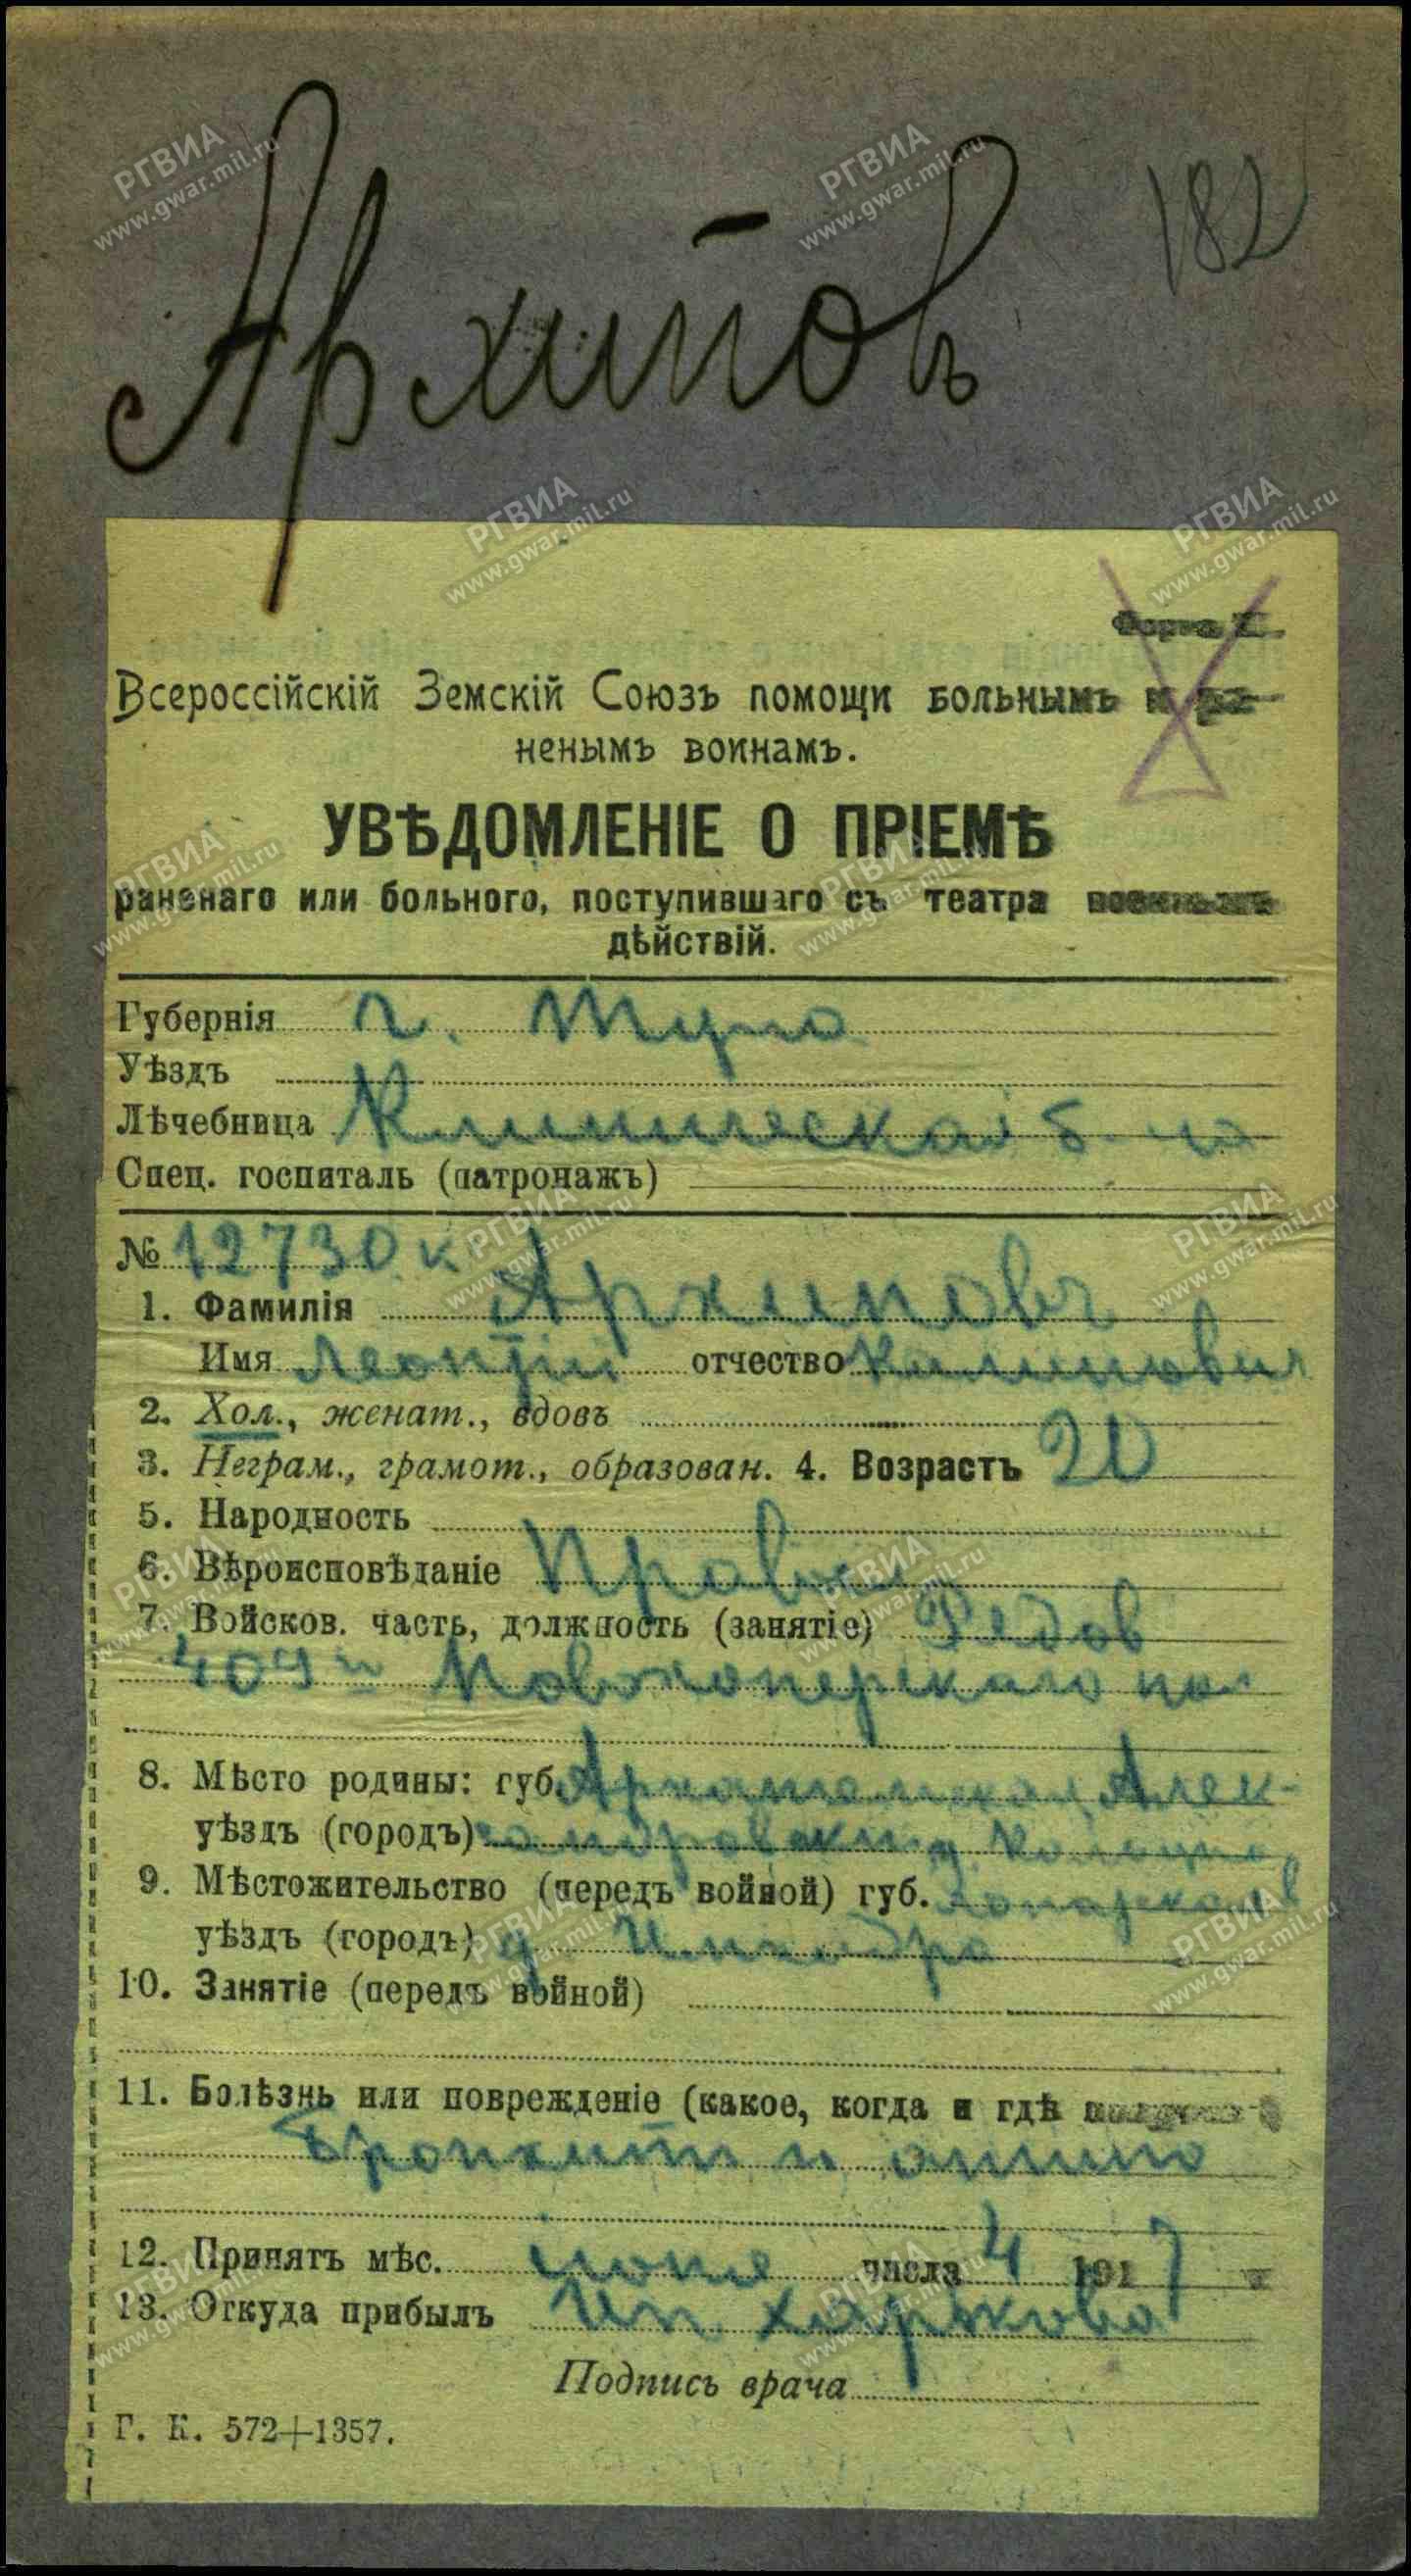 182
Архиповъ
Форма
Всероссійскій Земскій Союзъ помощи больнымъ и ра-
ненымъ воинамъ.
УВѢДОМЛЕНІЕ О ПРІЕМѢ
раненаго или больного, поступившаго съ театра военныхъ
дѣйствій.
Губернія г. Тула
Уѣздъ
Лѣчебница Клиническая б-ца
Спец. госпиталь (патронажъ)
№ 12730 к
1. Фамилія Архиповъ
Имя Леонтій отчество
2. Хол., женат., вдовъ
3. Неграм., грамот., образован. 4. Возрастъ 20
5. Народность
6. Вѣроисповѣданіе Правосл
7. Войсков. часть, должность (занятіе) Рядов
409 п Новохоперскаго пол
8. Мѣсто родины: губ. Архангельская, Алек-
уѣздъ (городъ) сандровскій у.
9. Мѣстожительство (передъ войной) губ.
уѣздъ (городъ) д.
10. Занятіе (передъ войной)
11. Болѣзнь или поврежденіе (какое, когда и гдѣ получено
Бронхитъ и
12. Принятъ мѣс. іюня числа 4 1917 г
13. Откуда прибылъ Из Харькова
Подпись врача
Г. К. 572+1357.